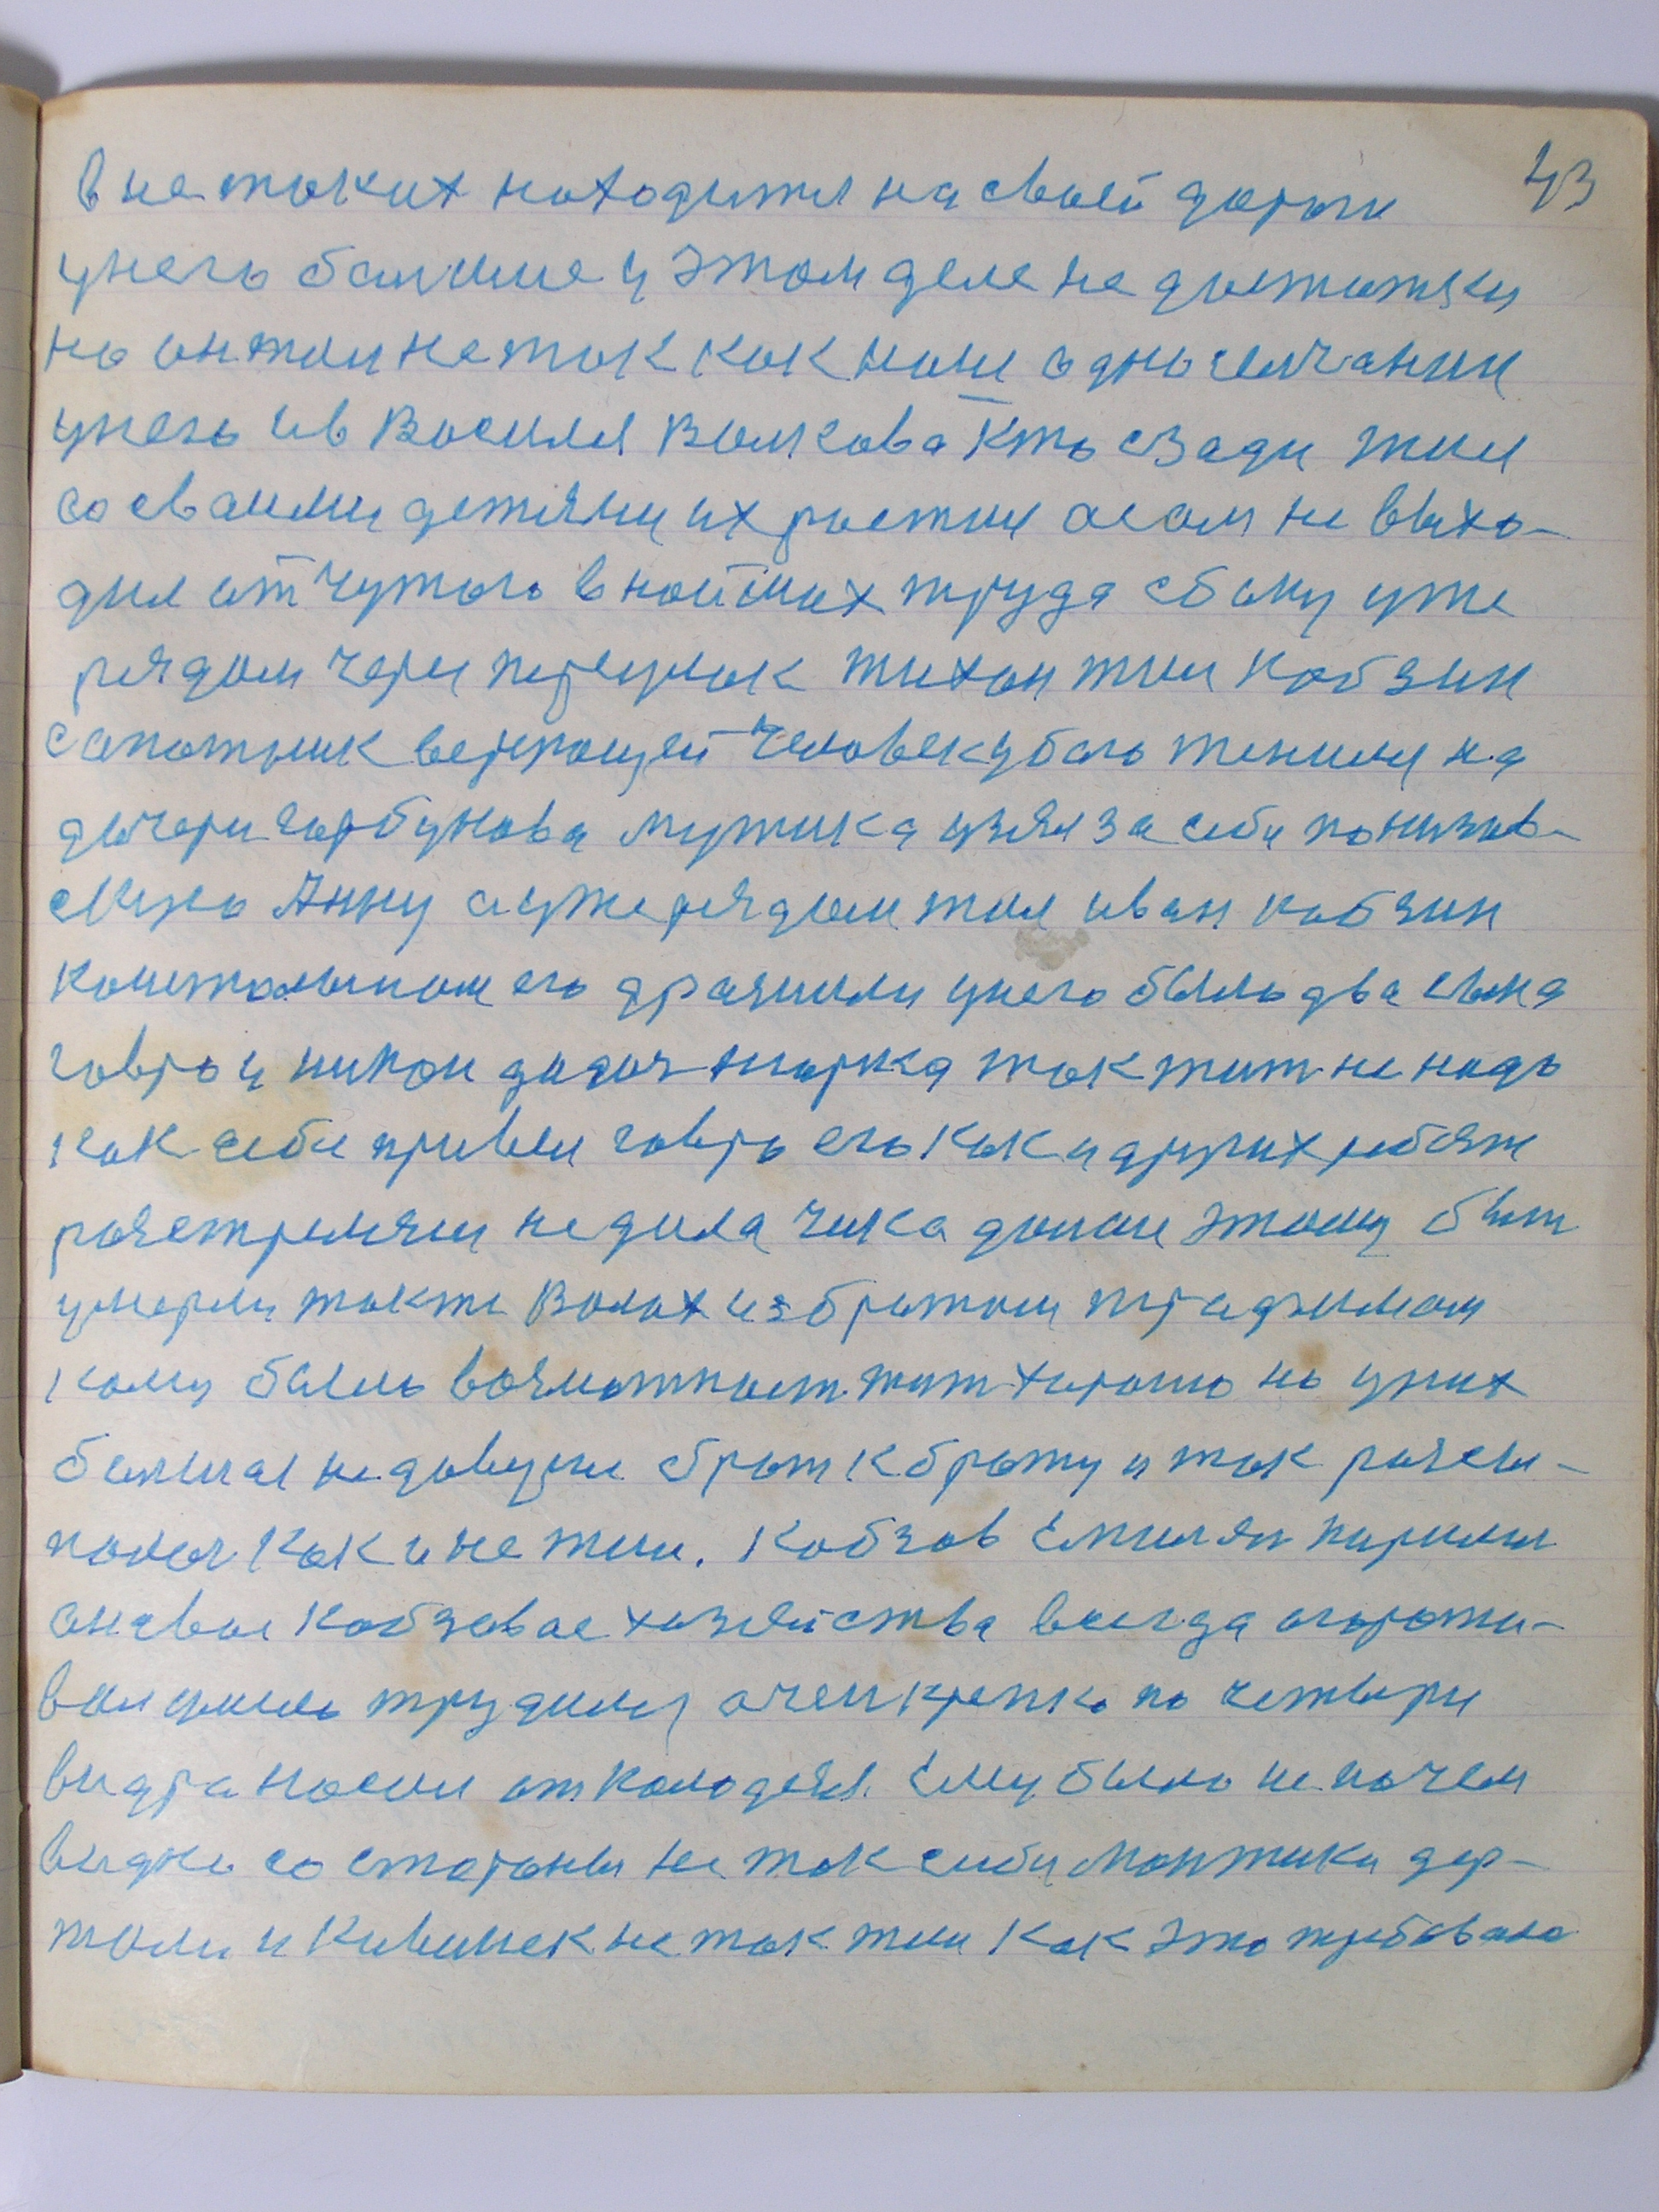 43
в не таких находится на своей дороги
унего большие у этом деле не достатки
но он жил не так как наши односелчании
унего ив Василия Волкова кто сзади жил
со своими детями их растил асам не выхо-
дил от чужого в наймах труда сбоку уже
рядом через переулок тихон жил кобзин
сапожник верующей человек убого женили на
дочери горбунова мужика узял за себя
Анну ауже рядом жил иван кобзин
его дразнили унего было два сына
говро и никон так жит не надо
как себя привел говро его как и других ребят
растреляли не дала чика этому быт
умерли также Волох из братом трафимом
кому было возможност жит хорошо но уних
болшая недоверие брат к брату и так
как и не жил. Кобзов Емилян
своае Кобзовае хозяйства всегда
вал трудился очен крепко по четыри
видра носил от колодезя. Ему было не почем
видно со стороны не так себя дер-
жали и не так жил как это требовало